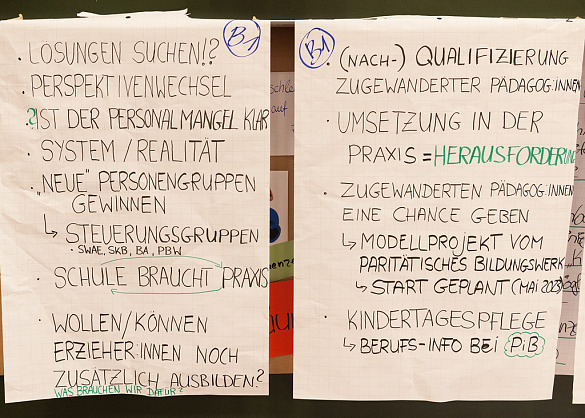 B1
· LÖSUNGEN SUCHEN!?
· PERSPEKTIVENWECHSEL
·? IST DER PERSONALMANGEL KLAR
· SYSTEM / REALITÄT
· „NEUE" PERSONENGRUPPEN
GEWINNEN
↳ STEUERUNGSGRUPPEN
· SWAE, SKB, BA, PBW
· SCHULE BRAUCHT PRAXIS
· WOLLEN/KÖNNEN
ERZIEHER:INNEN NOCH
ZUSÄTZLICH AUSBILDEN?
WAS BRAUCHEN WIR DAFÜR?
B1
· (NACH-) QUALIFIZIERUNG
ZUGEWANDERTER PÄDAGOG:INNEN
· UMSETZUNG IN DER
PRAXIS = HERAUSFORDERUNG
· ZUGEWANDERTEN PÄDAGOG:INNEN
EINE CHANCE GEBEN
↳ MODELLPROJEKT VOM
PARITÄTISCHES BILDUNGSWERK
↳ START GEPLANT (MAI 2023)
· KINDERTAGESPFLEGE
↳ BERUFS-INFO BEI PiB
auf